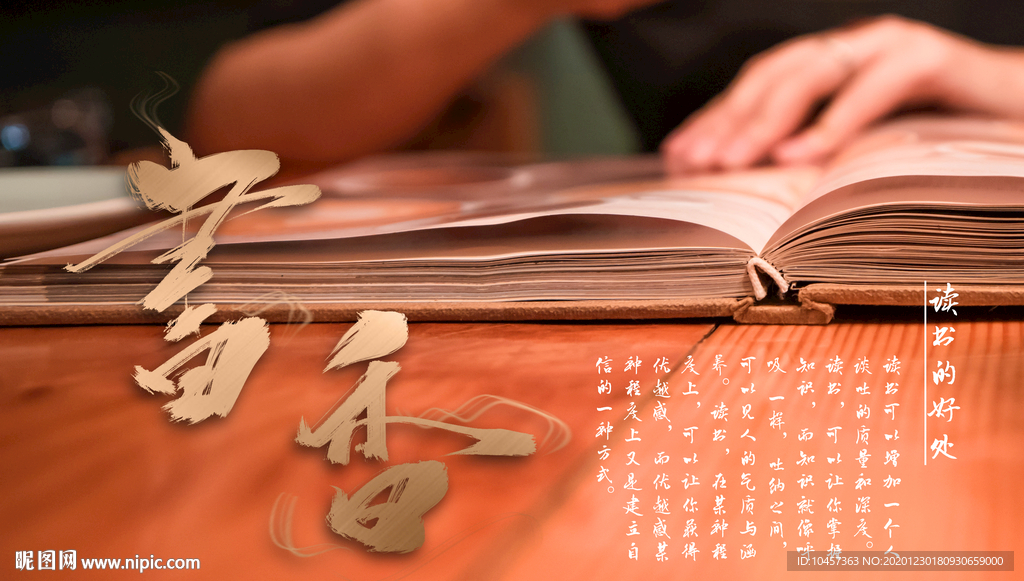 書香
读书的好处
读书可以增加一个人
谈吐的质量和深度。
读书，可以让你掌握
知识，而知识就像呼
吸一样，吐纳之间，
可以见人的气质与涵
养。读书，在某种程
度上，可以让你获得
优越感，而优越感某
种程度上又是建立自
信的一种方式。
昵图网 www.nipic.com
ID:10457363 NO:20201230180930659000